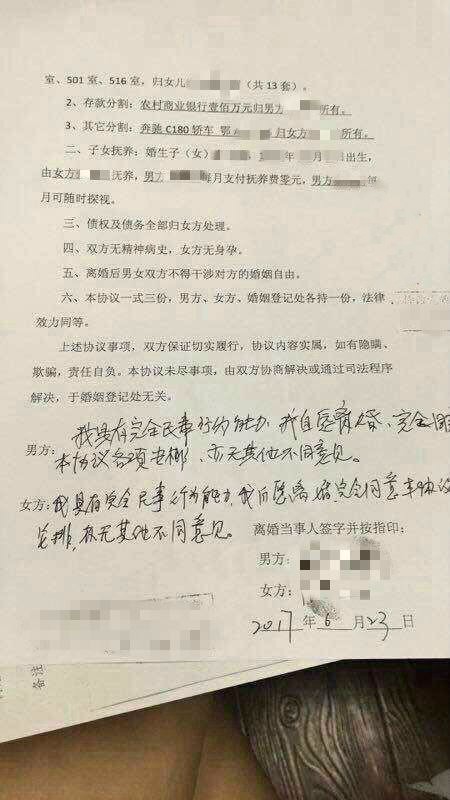 室、501 室、516 室，归女儿（共 13 套）。
2、存款分割：农村商业银行壹佰万元归男方所有。
3、其它分割：奔驰 C180 轿车 鄂 归女方所有。
二、子女抚养：婚生子（女） 年 月 出生，
由女方抚养，男方每月支付抚养费零元，男方每
月可随时探视。
三、债权及债务全部归女方处理。
四、双方无精神病史，女方无身孕。
五、离婚后男女双方不得干涉对方的婚姻自由。
六、本协议一式三份，男方、女方、婚姻登记处各持一份，法律
效力同等。
上述协议事项，双方保证切实履行，协议内容实属，如有隐瞒、
欺骗，责任自负。本协议未尽事项，由双方协商解决或通过司法程序
解决，于婚姻登记处无关。
我具有完全民事行为能力，我自愿离婚，完全同
男方：本协议各项安排，亦无其他不同意见。
女方：我具有完全民事行为能力，我自愿离婚完全同意本协议
安排，亦无其他不同意见。
离婚当事人签字并按指印：
男方：
女方：
2017 年 6 月 23 日
备注